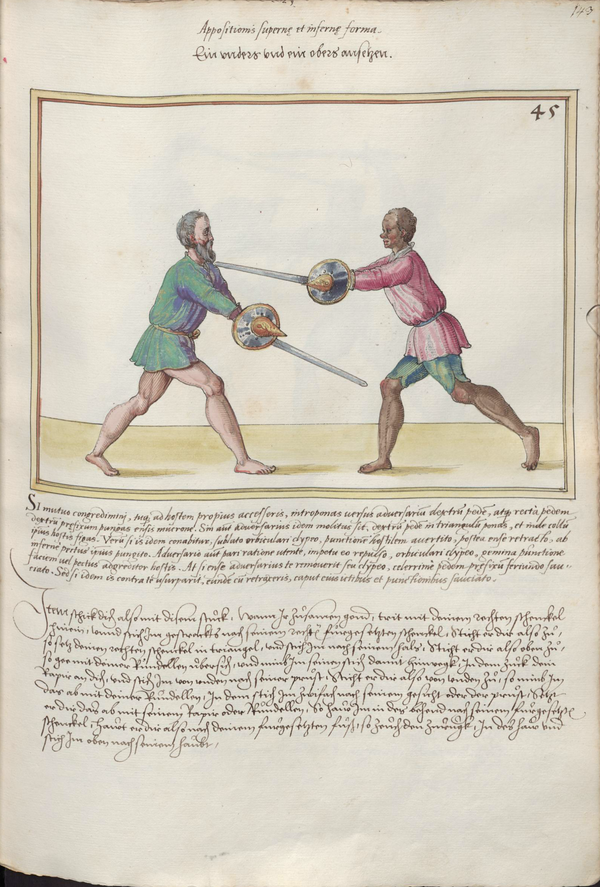 143
Appositionis supernę et infernę forma.
Ein vnders vnd ein obers ansetzen.
45
Si mutuo congrediminj, tuqȝ ad hostem propius accesseris, introponas versus adversariū dextrū pedē, atqȝ recta pedem
dextrū pręfixum pungas ensis mucrone. Sin aūt adversarius idem molitus sit, dextrū pedē in triangulū ponas, et inde collū
ipius hostis figas. Verū si is idem conabitur, sublato orbiculari clypeo, punctionē hostilem avertito, postea ense retracto, ab
infernę pectus ipius pungito. Adversario aūt pari ratione utente, impetu eo repulso, orbiculari clypeo, gemina punctione
faciem uel pectus aggreditor hostis. At si ense adversarius te removerit seu clypeo, celerrimę pedem pręfixū feriundo sau-
ciato. Sed si idem is contra te usurparit, eundē cū retraxeris, caput eius ictibus et punctionibus sauciato.
Item schick dich also mit disem stuck, Wann Ir zusamen gond, trit mit deinem rechten schenckel
hinein, vnnd stich Im gestracks nach seinem rechtē fürgesetzten schenckel, Sticht er dir also zu,
so setz deinen rechten schenckel in triangel, vnd stich Im nach seinem halß, Sticht er dir also oben zu,
so gee mit deiner Rundellen übersich, vnd nimb Im seinen stich damit hinwegk, In dem zuck dein
Rapir an dich vnd stich Im von vnden nach seiner prust, Sticht er dir also von vnden zu, so nimb Im
das ab mit deiner Rundellen, In dem stich Im zwifach nach seinem gesicht oder der prust, Setzt
er dir das ab mit seinem Rapir oder Rundellen, so haw Im in des behend nach seinem fürgesetzten
schenckel, Hawt er dir also nach deinem fürgesetzten fuß, so zeuch den zuruck, In des haw vnd
stich Im oben nach seinem haubt,